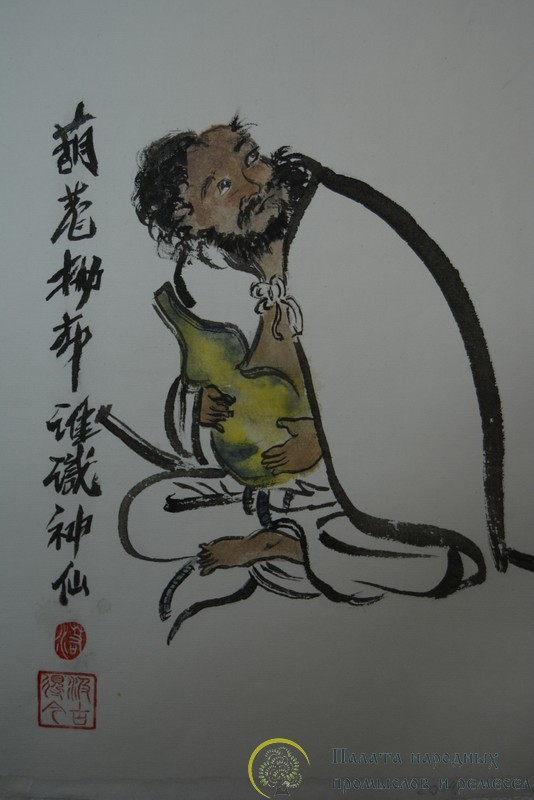 葫蘆抛却誰識神仙
汲古
Палата народных
промыслов и ремесел